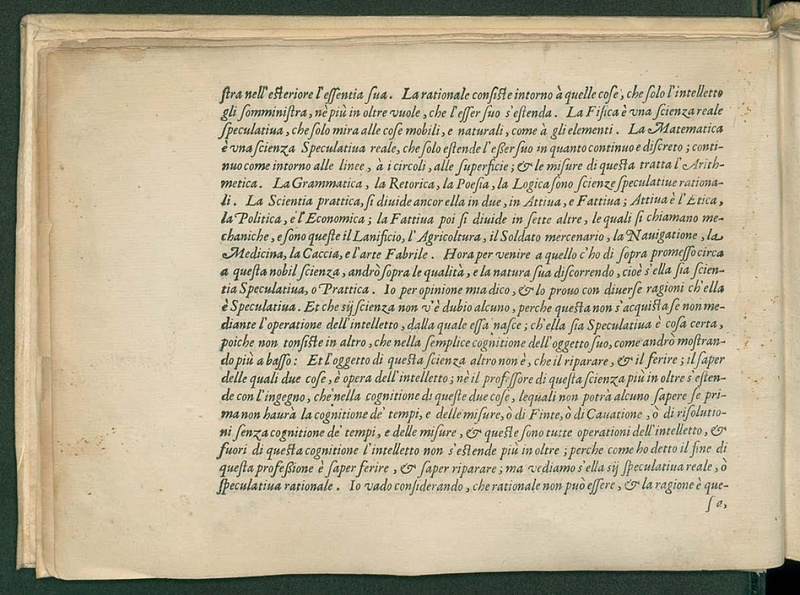 ſtra nell'eſteriore l'eſſentia ſua. La rationale conſiſte intorno à quelle coſe, che ſolo l'intelletto
gli ſomminiſtra, nè più in oltre vuole, che l'eſſer ſuo s'eſtenda. La Fiſica è vna ſcienza reale
ſpeculatiua, che ſolo mira alle coſe mobili, e naturali, come à gli elementi. La Matematica
è vna ſcienza Speculatiua reale, che ſolo eſtende l'eßer ſuo in quanto continuo e diſcreto; conti-
nuo come intorno alle linee, à i circoli, alle ſuperficie; & le miſure di queſta tratta l'Arith-
metica. La Grammatica, la Retorica, la Poeſia, la Logica ſono ſcienze ſpeculatiue rationa-
li. La Scientia prattica, ſi diuide ancor ella in due, in Attiua, e Fattiua; Attiua è l'Etica,
la Politica, e l'Economica; la Fattiua poi ſi diuide in ſette altre, le quali ſi chiamano me-
chaniche, e ſono queſte il Lanificio, l'Agricoltura, il Soldato mercenario, la Nauigatione, la
Medicina, la Caccia, e l'arte Fabrile. Hora per venire a quello c'ho di ſopra promeſſo circa
a queſta nobil ſcienza, andrò ſopra le qualità, e la natura ſua diſcorrendo, cioè s'ella ſia ſcien-
tia Speculatiua, o Prattica. Io per opinione mia dico, & lo prouo con diuerſe ragioni ch'ella
è Speculatiua. Et che sij ſcienza non v'è dubio alcuno, perche queſta non s'acquiſta ſe non me-
diante l'operatione dell'intelletto, dalla quale eſſa naſce; ch'ella ſia Speculatiua è coſa certa,
poiche non tonſiſte in altro, che nella ſemplice cognitione dell'oggetto ſuo, come andrò moſtran-
do più a baſſo: Et l'oggetto di queſta ſcienza altro non è, che il riparare, & il ferire; il ſaper
delle quali due coſe, è opera dell'intelletto; nè il profeſſore di queſta ſcienza più in oltre s'eſten-
de con l'ingegno, che nella cognitione di queſte due coſe, lequali non potrà alcuno ſapere ſe pri-
ma non haurà la cognitione de' tempi, e delle miſure, ò di Finte, ò di Cauatione, ò di riſolutio-
ni ſenza cognitione de' tempi, e delle miſure, & queſte ſono tutte operationi dell'intelletto, &
fuori di queſta cognitione l'intelletto non s'eſtende più in oltre; perche come ho detto il fine di
queſta profeßione è ſaper ferire, & ſaper riparare; ma vediamo s'ella sij ſpeculatiua reale, ò
ſpeculatiua rationale. Io vado conſiderando, che rationale non può eſſere, & la ragione è que-
ſta,